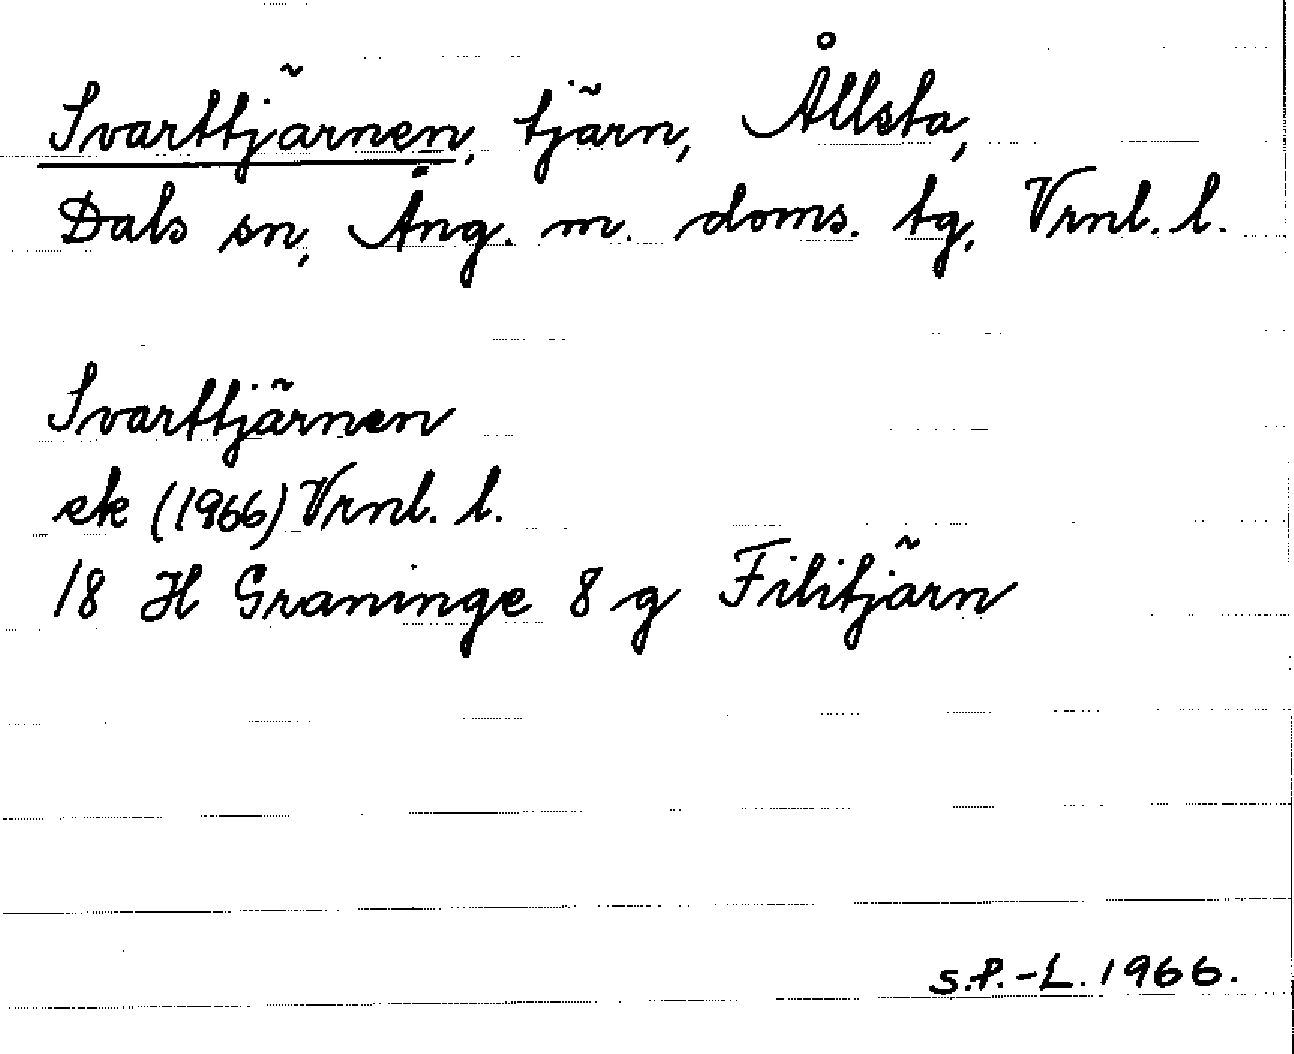 Svarttjärnen, tjärn, Ållsta,
Dals sn, Ång. m. doms. tg, Vrnl. l.
Svarttjärnen
ek (1966) Vrnl. l.
18 H Graninge 8 g Filitjärn
S.P.-L. 1966.